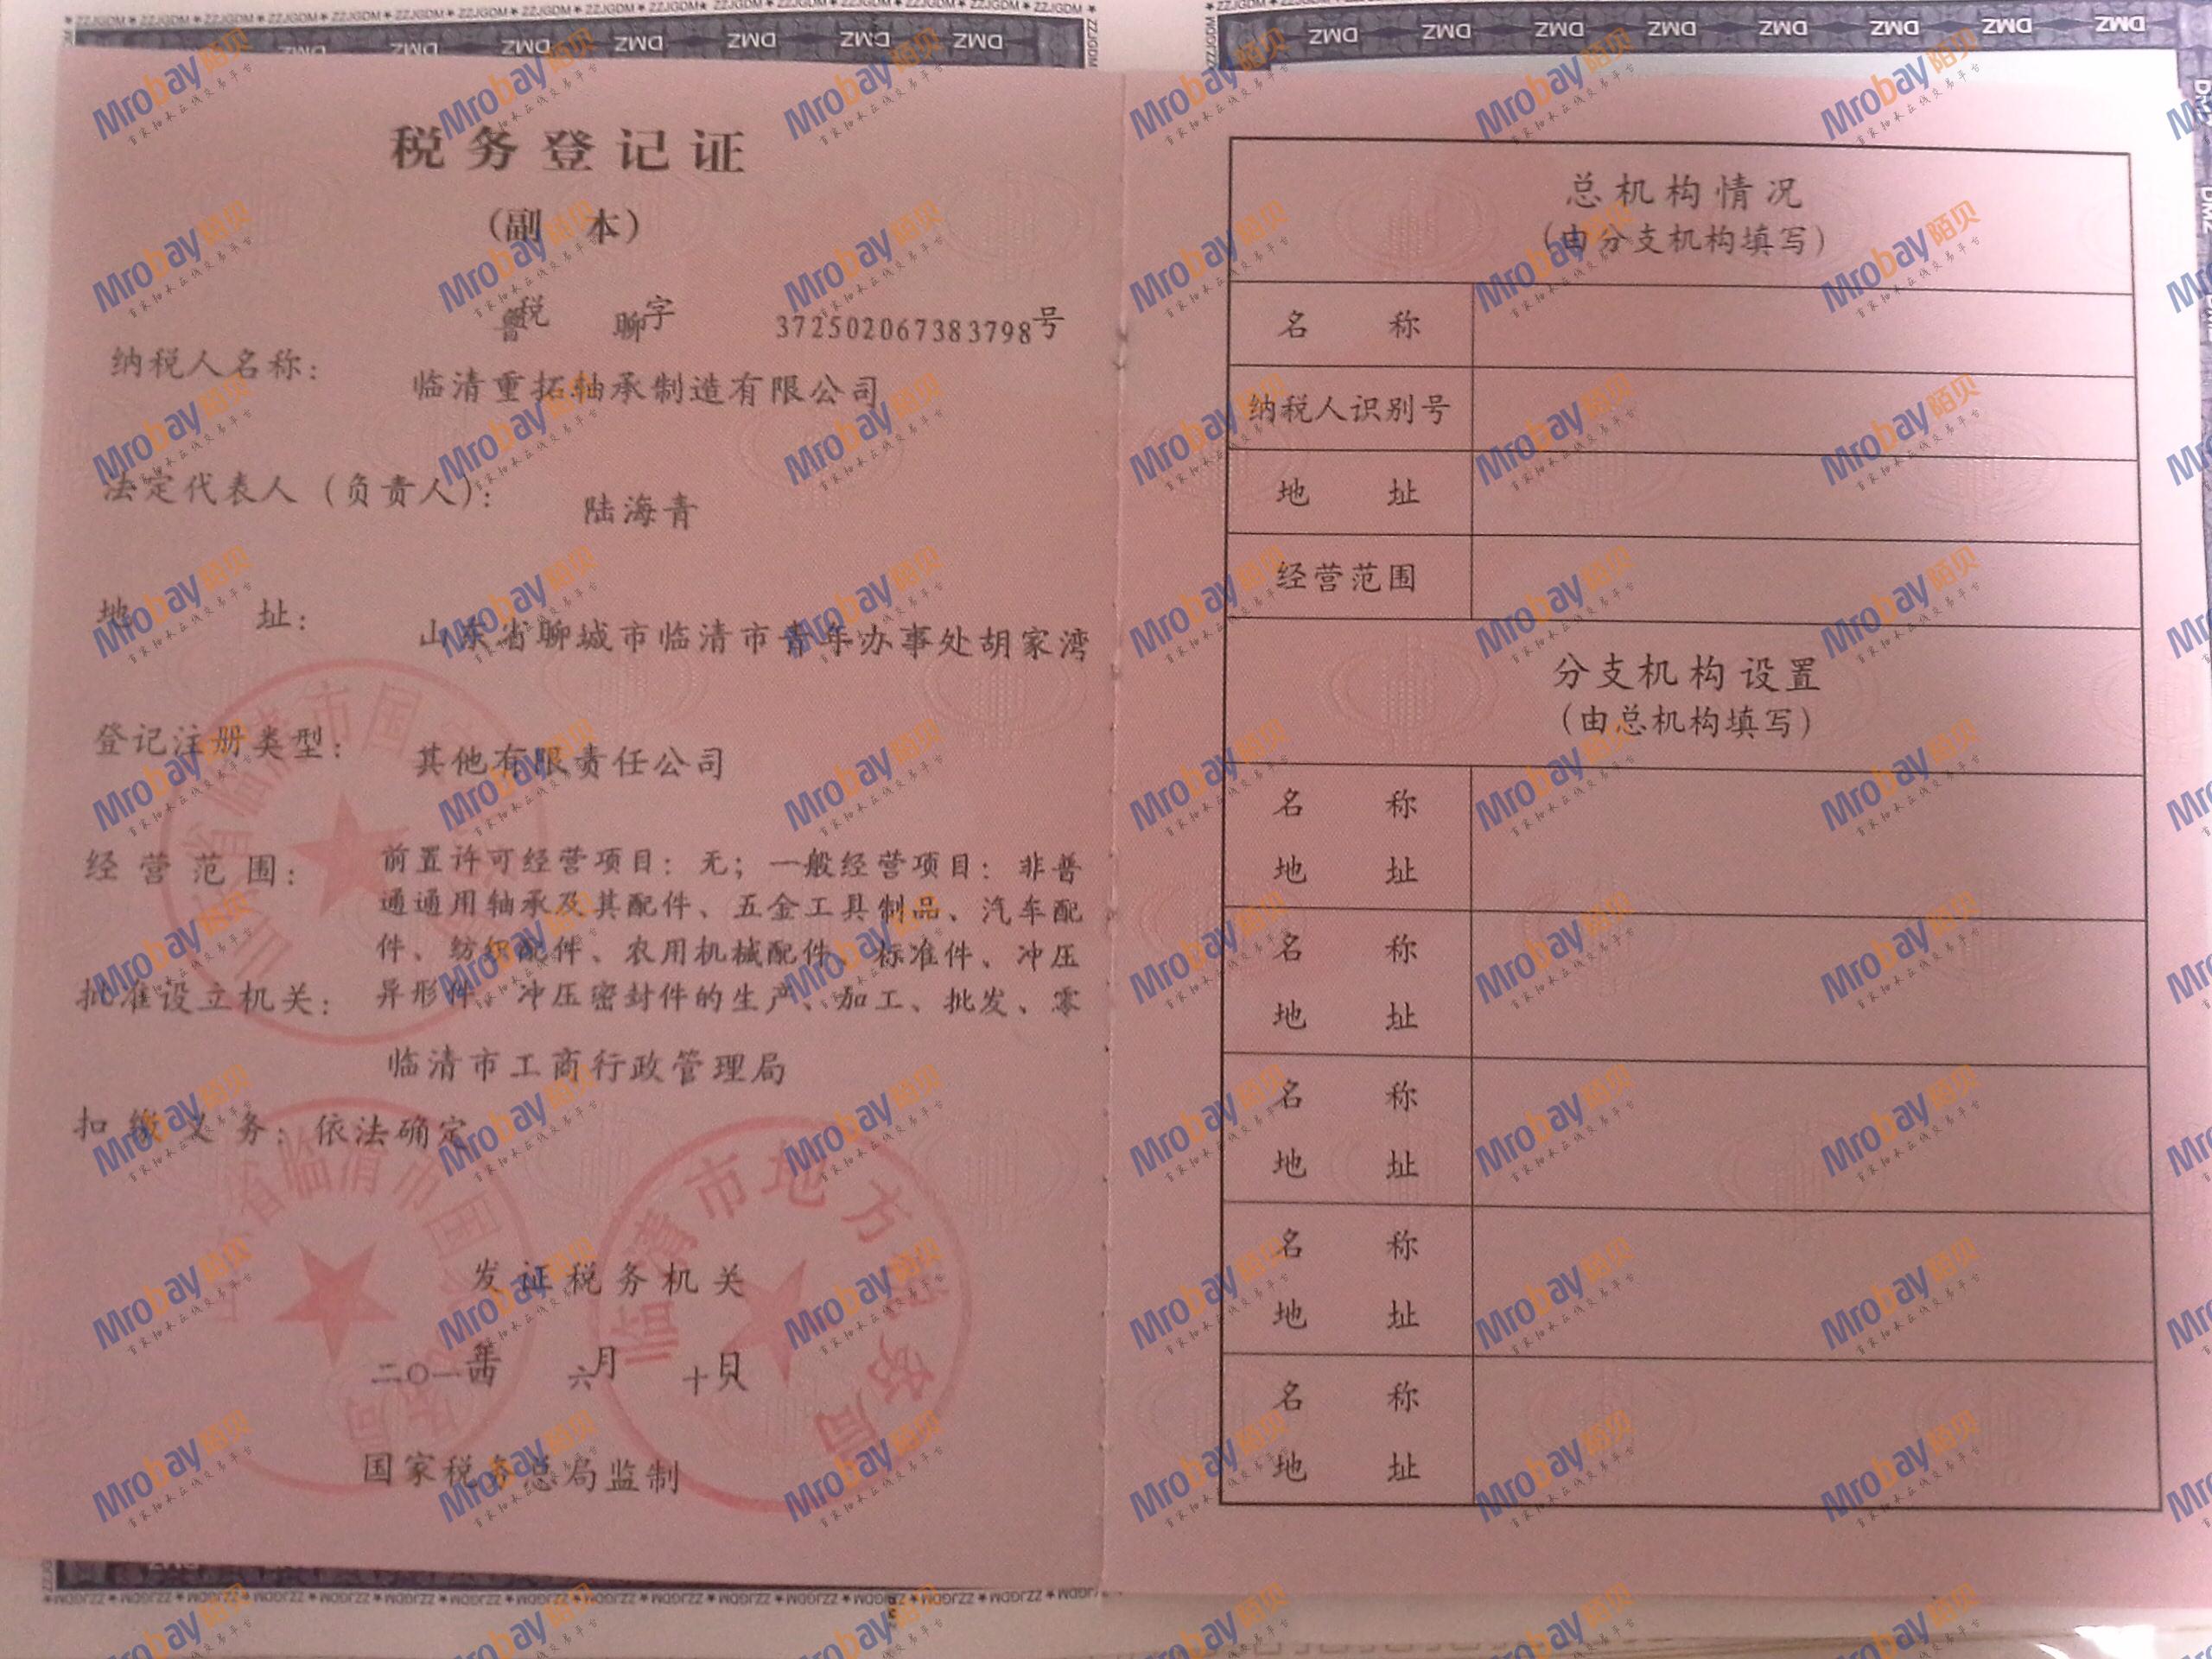 税务登记证
(副 本)
鲁税 聊字 372502067383798号
纳税人名称: 临清重拓轴承制造有限公司
法定代表人(负责人): 陆海青
地 址: 山东省聊城市临清市青年办事处胡家湾
登记注册类型: 其他有限责任公司
经营范围: 前置许可经营项目:无;一般经营项目:非普
通通用轴承及其配件、五金工具制品、汽车配
件、纺织配件、农用机械配件、标准件、冲压
批准设立机关: 异形件、冲压密封件的生产、加工、批发、零
临清市工商行政管理局
扣缴义务: 依法确定
发证税务机关
二〇一四年 六月 十日
国家税务总局监制
临清市地方税务局
总机构情况
(由分支机构填写)
名 称
纳税人识别号
地 址
经营范围
分支机构设置
(由总机构填写)
名 称
地 址
名 称
地 址
名 称
地 址
名 称
地 址
名 称
地 址
Mrobay陌贝
DMZ
ZZJGDM